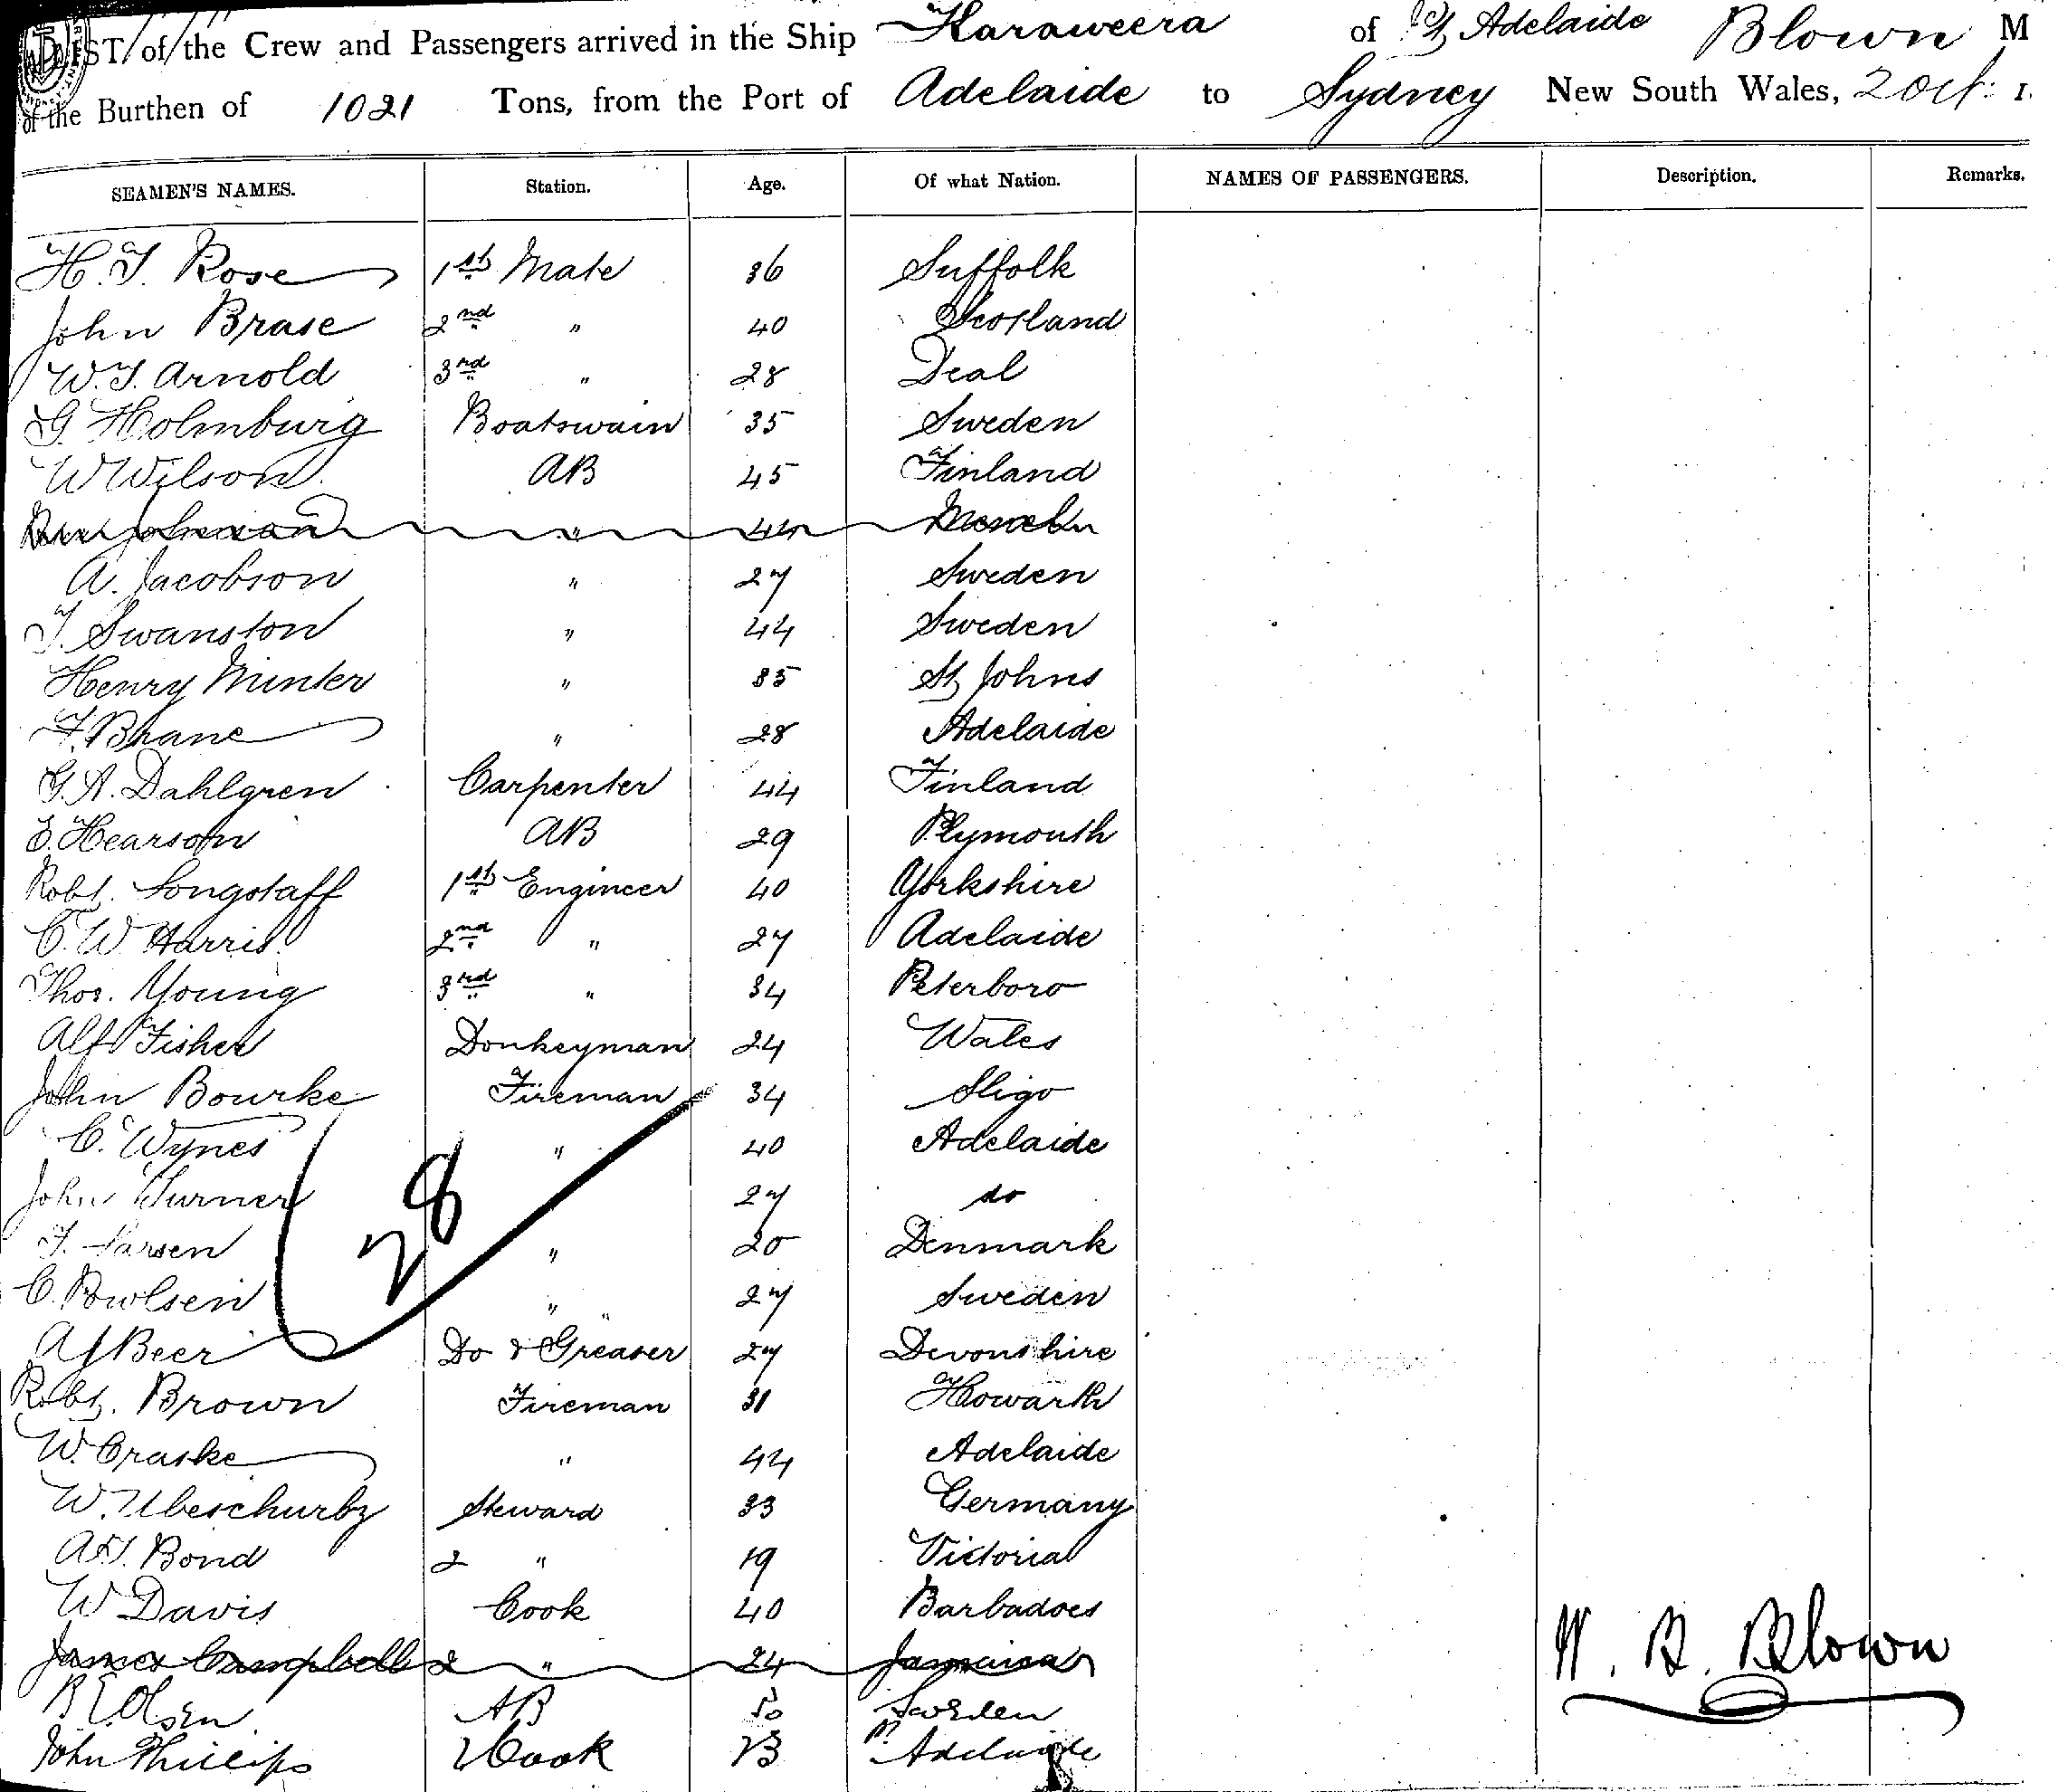 LIST of the Crew and Passengers arrived in the Ship Karaweera of Pt Adelaide Blown M
of the Burthen of 1021 Tons, from the Port of Adelaide to Sydney New South Wales, 2 Oct: 1.
SEAMEN'S NAMES. Station. Age. Of what Nation. NAMES OF PASSENGERS. Description. Remarks.
H. T. Rose 1st Mate 36 Suffolk
John Brase 2nd " 40 Scotland
W. T. Arnold 3rd " 28 Deal
G Holmburg Boatswain 35 Sweden
W Wilson AB 45 Finland
Johnson " 44
A. Jacobson " 27 Sweden
T. Swanston " 44 Sweden
Henry Minter " 35 St Johns
F. Bhane " 28 Adelaide
G. A. Dahlgren Carpenter 44 Finland
E. Hearson AB 29 Plymouth
Robt. Longstaff 1st Engineer 40 Yorkshire
C. W Harris 2nd " 27 Adelaide
Thos. Young 3rd " 34 Peterboro
Alf Fisher Donkeyman 24 Wales
John Bourke Fireman 34 Sligo
C. Wynes " 40 Adelaide
John Turner 27 do
F. Larsen " 20 Denmark
C. Powlsen " " 27 Sweden
28
A J Beer Do & Greaser 27 Devonshire
Robt. Brown Fireman 31 Howarth
W. Craske " 44 Adelaide
W. Ubeschurbz Steward 33 Germany
A. T. Bond 2 " 19 Victoria
W Davis Cook 40 Barbadoes
James Campbell 2 " 24 Jamaica
W. B. Blown
Olsen AB 50 Sweden
John Phillips 2 Cook 23 Pt Adelaide